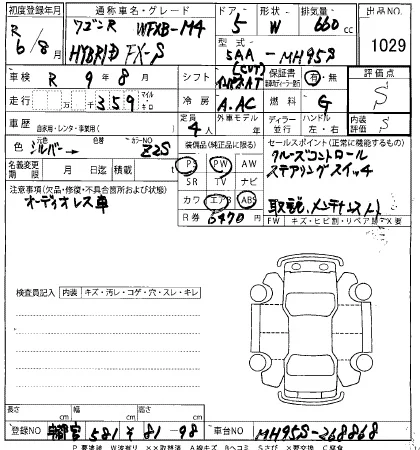 初度登録年月 通称車名・グレード ドア 形状 排気量 出品NO
R 6/8月 ワゴンR WFXB-M4 5 W 660 cc 1029
HYBRID FX-S 型式 5AA-MH95S
車検 R 9年8月 シフト (CVT) 保証書 有・無 評価点 S
走行 万 千 359 マイル キロ 冷房 A.AC 燃料 G
車歴 自家用・レンタ・事業用( ) 定員 4人 外車モデル 年 ディーラー・並行 ハンドル 左・右 内装評価 S
色 シルバー 色替 カラーNO Z2S
名義変更期限 月 日迄 積載 t
装備品(純正品に限る)
PS PW AW
SR TV ナビ
カワ エアB ABS
R券 6470円
セールスポイント(正常に機能するもの)
クルーズコントロール
ステアリングスイッチ
取説、メンテナンスノート
FW キズ・ヒビ割・リペア跡・X要
注意事項(欠品・修復・不具合箇所および状態)
オーディオレス車
検査員記入 内装 キズ・汚レ・コゲ・穴・スレ・キレ
長さ cm 幅 cm 高さ cm
登録NO 宇都宮 581 81-98 車台NO MH95S-268868
P要塗装 W波有リ XX取替済 A線キズ Bヘコミ Sさび X要交換 C腐食